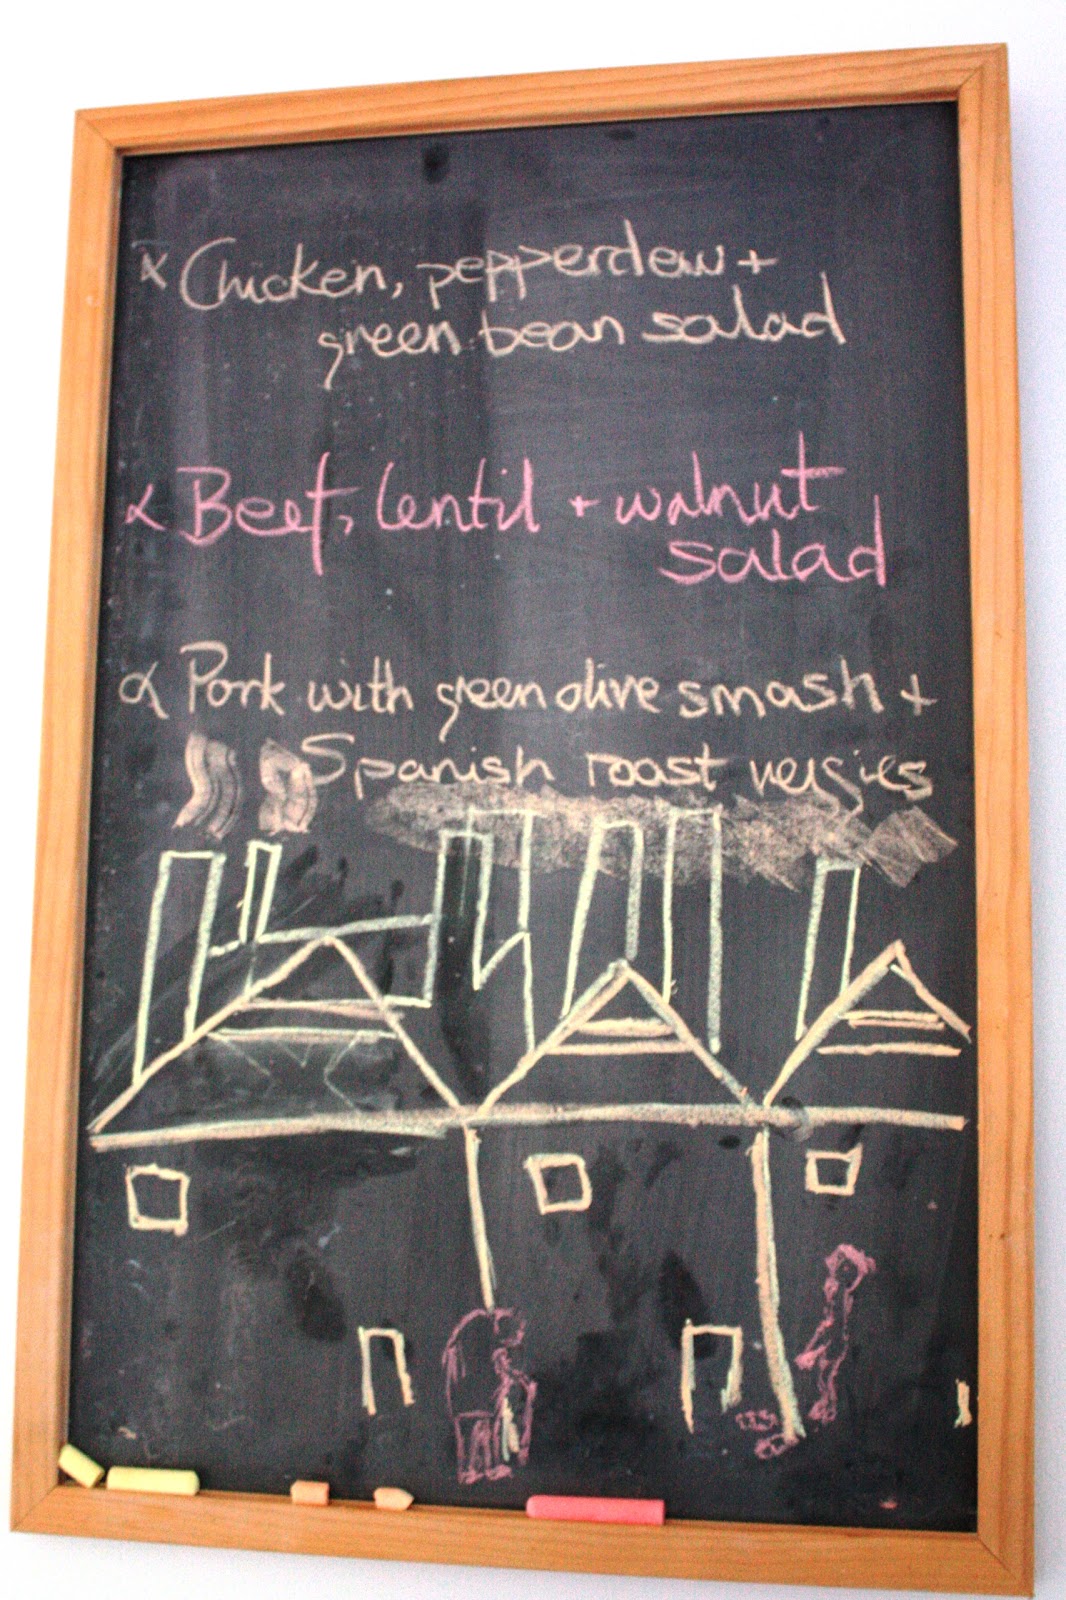 Chicken, pepperdew +
green bean salad
Beef, lentil + walnut
salad
Pork with green olive smash +
Spanish roast veggies